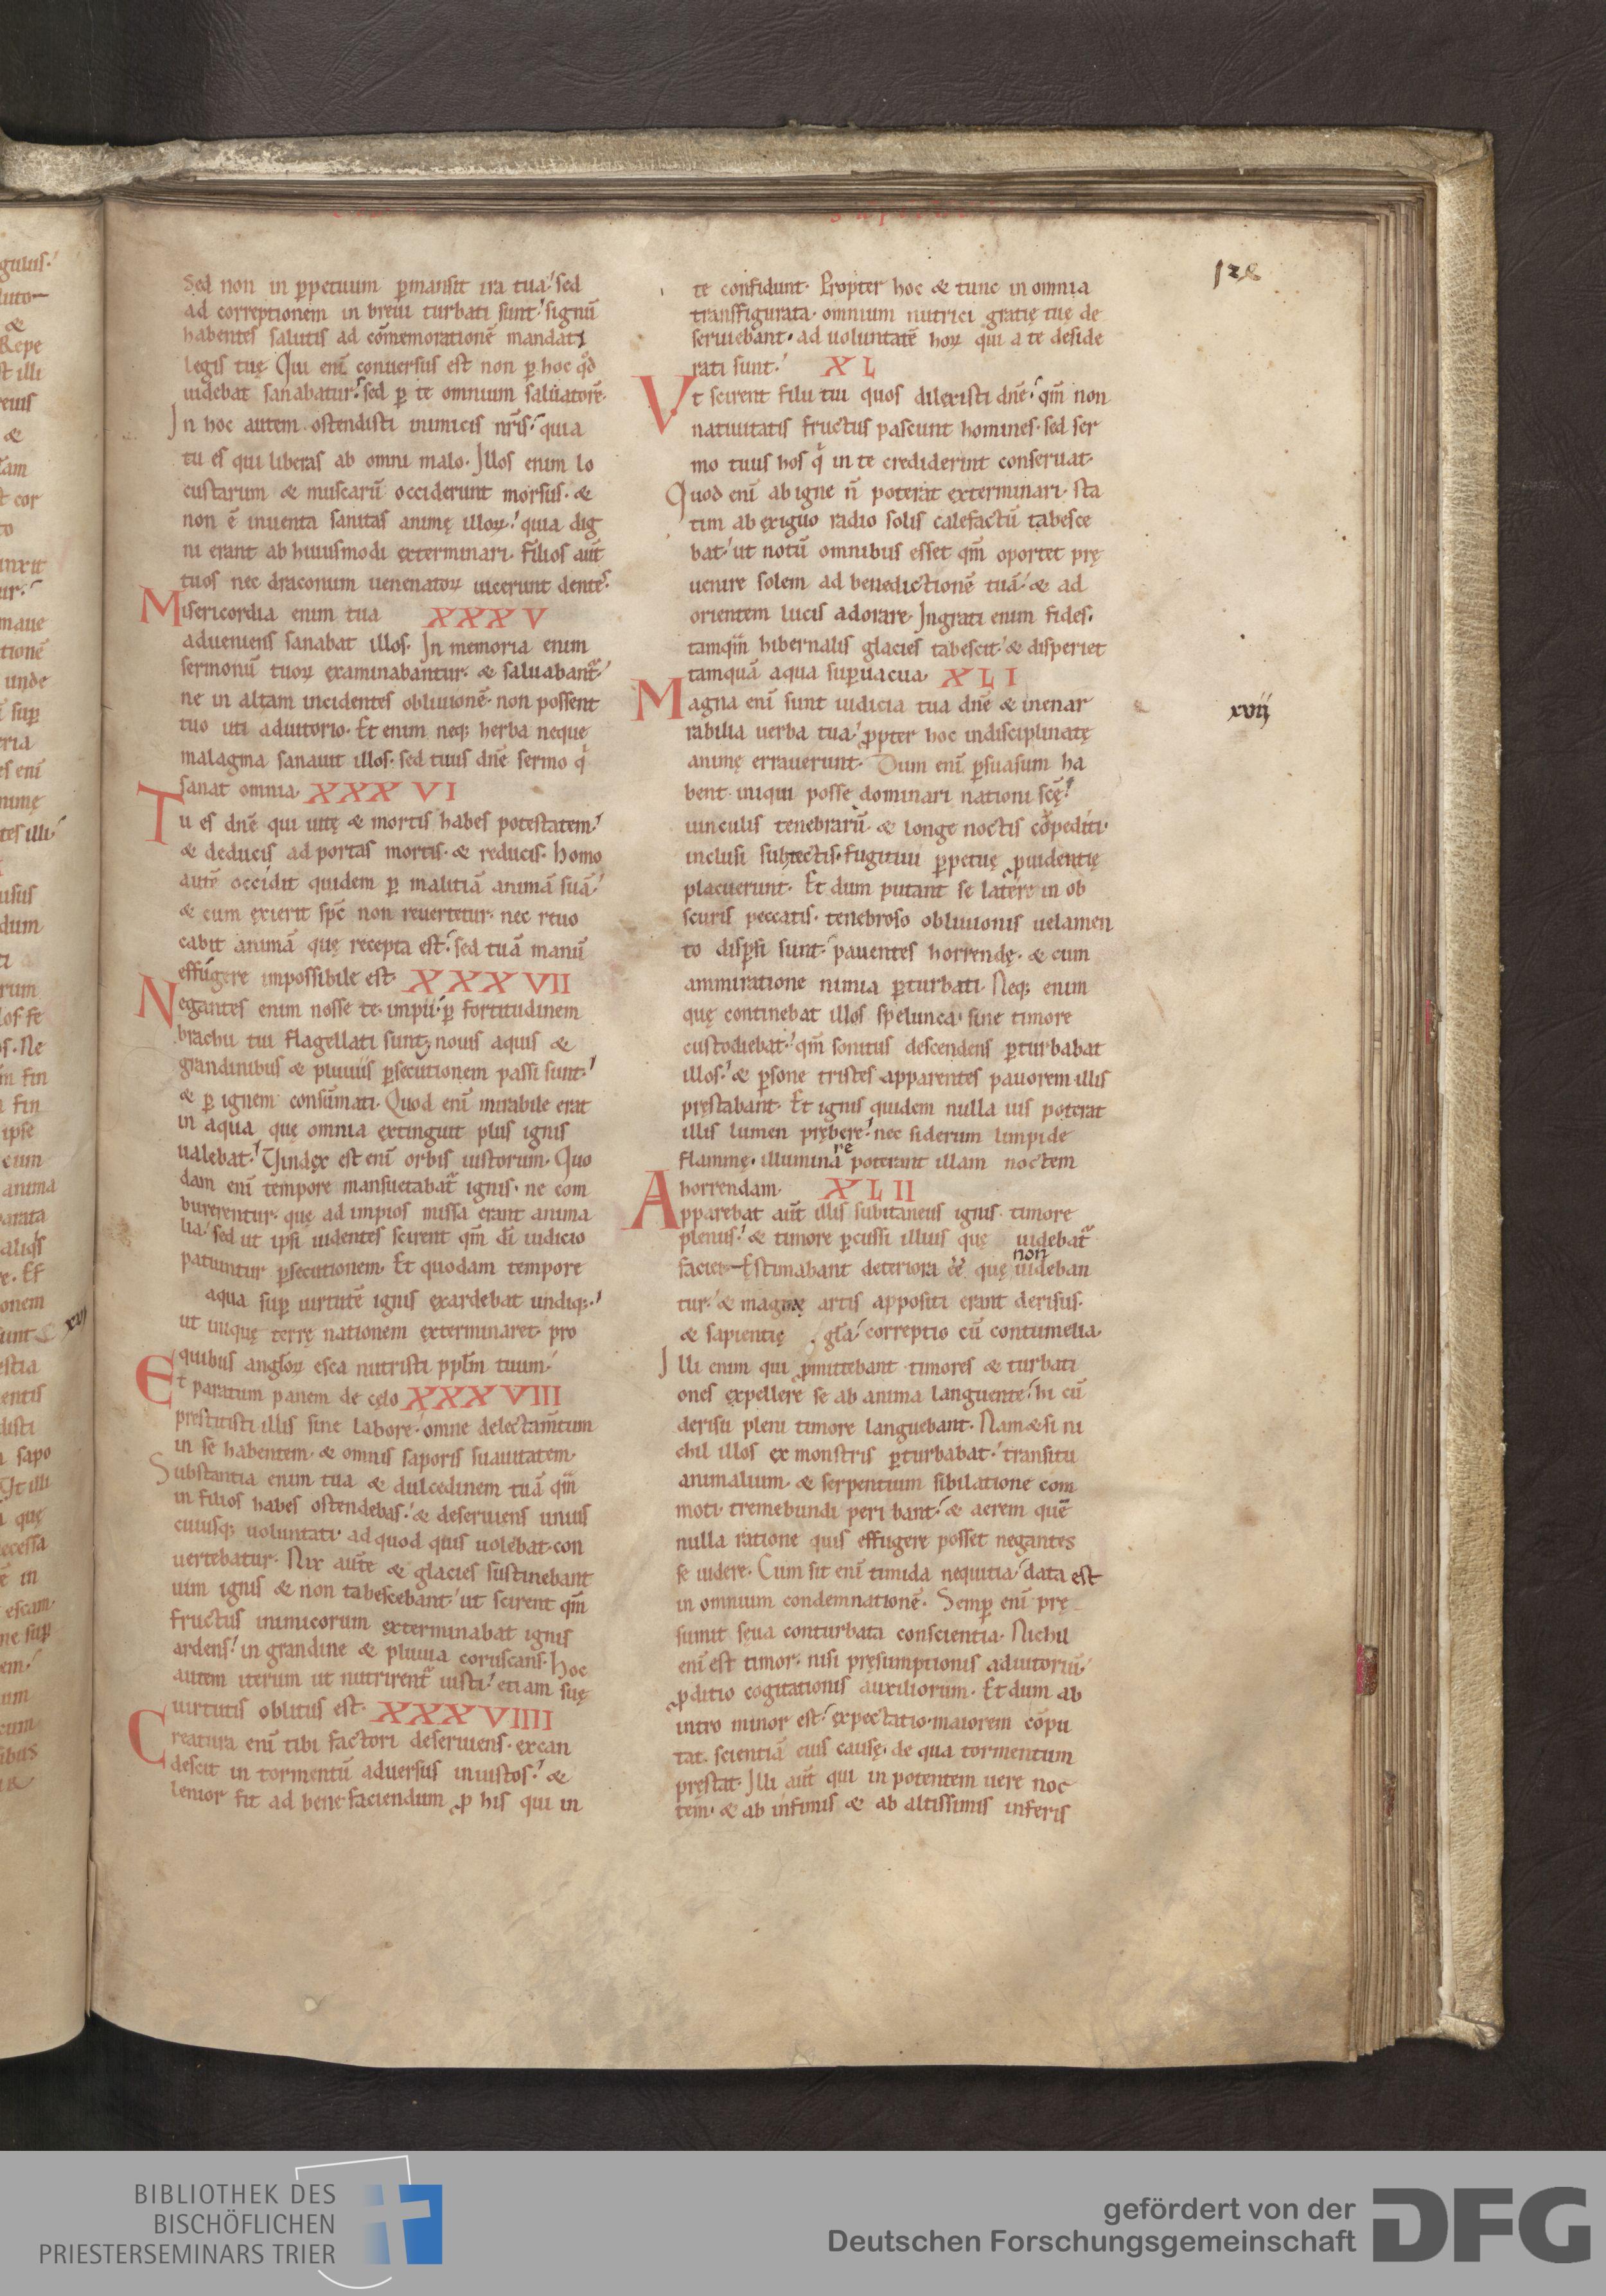 128
Sed non in ꝑpetuum ꝑmansit ira tua. sed
ad correptionem in breui turbati sunt. signū
habentes salutis ad cōmemorationē mandati
legis tuę. Qui enī conuersus est non ꝑ hoc qͦd
uidebat sanabatur. sed ꝑ te omnium saluatorē.
In hoc autem ostendisti inimicis nr̄is. quia
tu es qui liberas ab omni malo. Illos enim lo
custarum & muscarū occiderunt morsus. &
non ē inuenta sanitas animę illoꝝ. quia dig
ni erant ab huiusmodi exterminari. Filios aut̄
tuos nec draconum uenenatoꝝ uicerunt dentes.
Misericordia enim tua XXXV
adueniens sanabat illos. In memoria enim
sermonū tuoꝝ examinabantur. & saluabant᷑.
ne in altam incidentes obliuionē. non possent
tuo uti adiutorio. Et enim neq; herba neque
malagma sanauit illos. sed tuus dn̄e sermo qͥ
sanat omnia. XXXVI
Tu es dn̄e qui uitę & mortis habes potestatem.
& deducis ad portas mortis. & reducis. homo
autē occidit quidem ꝑ malitiā animā suā.
& cum exierit sp̄c non reuertetur. nec reuo
cabit animā quę recepta est. sed tuā manū
effugere impossibile est. XXXVII
Negantes enim nosse te impii. ꝑ fortitudinem
brachii tui flagellati sunt. nouis aquis &
grandinibus & pluuiis ꝑsecutionem passi sunt.
& ꝑ ignem consūmati. Quod enī mirabile erat
in aqua quę omnia extinguit plus ignis
ualebat. Uindex est enī orbis iustorum. Quo
dam enī tempore mansuetabat᷑ ignis. ne com
burerentur. quę ad impios missa erant anima
lia. sed ut ipsi uidentes scirent qm̄ dī iudicio
patiuntur ꝑsecutionem. Et quodam tempore
aqua suꝑ uirtutē ignis exardebat undiq;.
ut iniquę terrę nationem exterminaret. pro
quibus angloꝝ esca nutristi pplm̄ tuum.
Et paratum panem de cęlo XXXVIII
prestitisti illis sine labore. omne delectam̄tum
in se habentem. & omnis saporis suauitatem.
Substantia enim tua & dulcedinem tuā qm̄
in filios habes ostendebas. & deseruiens unius
cuiusq; uoluntati. ad quod quis uolebat con
uertebatur. Nix autē & glacies sustinebant
uim ignis & non tabescebant. ut scirent qm̄
fructus inimicorum exterminabat ignis
ardens. in grandine & pluuia coruscans. Hoc
autem iterum ut nutrirent᷑ iusti. etiam suę
uirtutis oblitus est. XXXVIIII
Creatura enī tibi factori deseruiens. excan
descit in tormentū aduersus iniustos. &
lenior fit ad bene faciendum ꝓ his qui in
te confidunt. Propter hoc & tunc in omnia
transfigurata. omnium nutrici gratię tuę de
seruiebant. ad uoluntatē hoꝝ qui a te deside
rati sunt. XL
Vt scirent filii tui quos dilexisti dn̄e. qm̄ non
natiuitatis fructus pascunt homines. sed ser
mo tuus hos qͥ in te crediderint conseruat.
Quod enī ab igne n̄ poterat exterminari. sta
tim ab exiguo radio solis calefactū tabesce
bat. ut notū omnibus esset qm̄ oportet prę
uenire solem ad benedictionē tuā. & ad
orientem lucis adorare. Ingrati enim fides.
tamqm̄ hibernalis glacies tabescit. & disperiet
tamquā aqua suꝑuacua. XLI
Magna enī sunt iudicia tua dn̄e & inenar
xvij
rabilia uerba tua. ꝓpter hoc indisciplinatę
animę errauerunt. Dum enī ꝑsuasum ha
bent iniqui posse dominari nationi scę.
uinculis tenebrarū. & longe noctis cōpediti.
inclusi sub tectis. fugitiui ꝑpetuę ꝓuidentię
placuerunt. Et dum putant se latere in ob
scuris peccatis. tenebroso obliuionis uelamen
to disꝑsi sunt. pauentes horrende. & cum
ammiratione nimia ꝑturbati. Neq; enim
quę continebat illos spelunca. sine timore
custodiebat. qm̄ sonitus descendens ꝑturbabat
illos. & ꝑsone tristes apparentes pauorem illis
prestabant. Et ignis quidem nulla uis poterat
illis lumen prębere. nec siderum limpide
flammę. illuminare poterant illam noctem
horrendam. XLII
Apparebat aut̄ illis subitaneus ignis timore
plenus. & timore ꝑcussi illius quę uidebat᷑
faciei. Estimabant deteriora ēē quę non uideban
tur. & magicę artis appositi erant derisus.
& sapientię glā. correptio cū contumelia.
Illi enim qui ꝓmittebant timores & turbati
ones expellere se ab anima languente. hi cū
derisu pleni timore languebant. Nam & si ni
chil illos ex monstris ꝑturbabat. transitu
animalium. & serpentium sibilatione com
moti. tremebundi peribant. & aerem quē
nulla ratione quis effugere posset negantes
se uidere. Cum sit enī timida nequitia. data est
in omnium condemnationē. Semꝑ enī prę
sumit sęua conturbata conscientia. Nichil
enī est timor. nisi pręsumptionis adiutoriū.
ꝓditio cogitationis auxiliorum. Et dum ab
intro minor est. expectatio. maiorem cōpu
tat. scientiā eius causę. de qua tormentum
prestat. Illi aut̄ qui in potentem uere noc
tem. & ab infimis & ab altissimis inferis
BIBLIOTHEK DES
BISCHÖFLICHEN
PRIESTERSEMINARS TRIER
gefördert von der
Deutschen Forschungsgemeinschaft
DFG